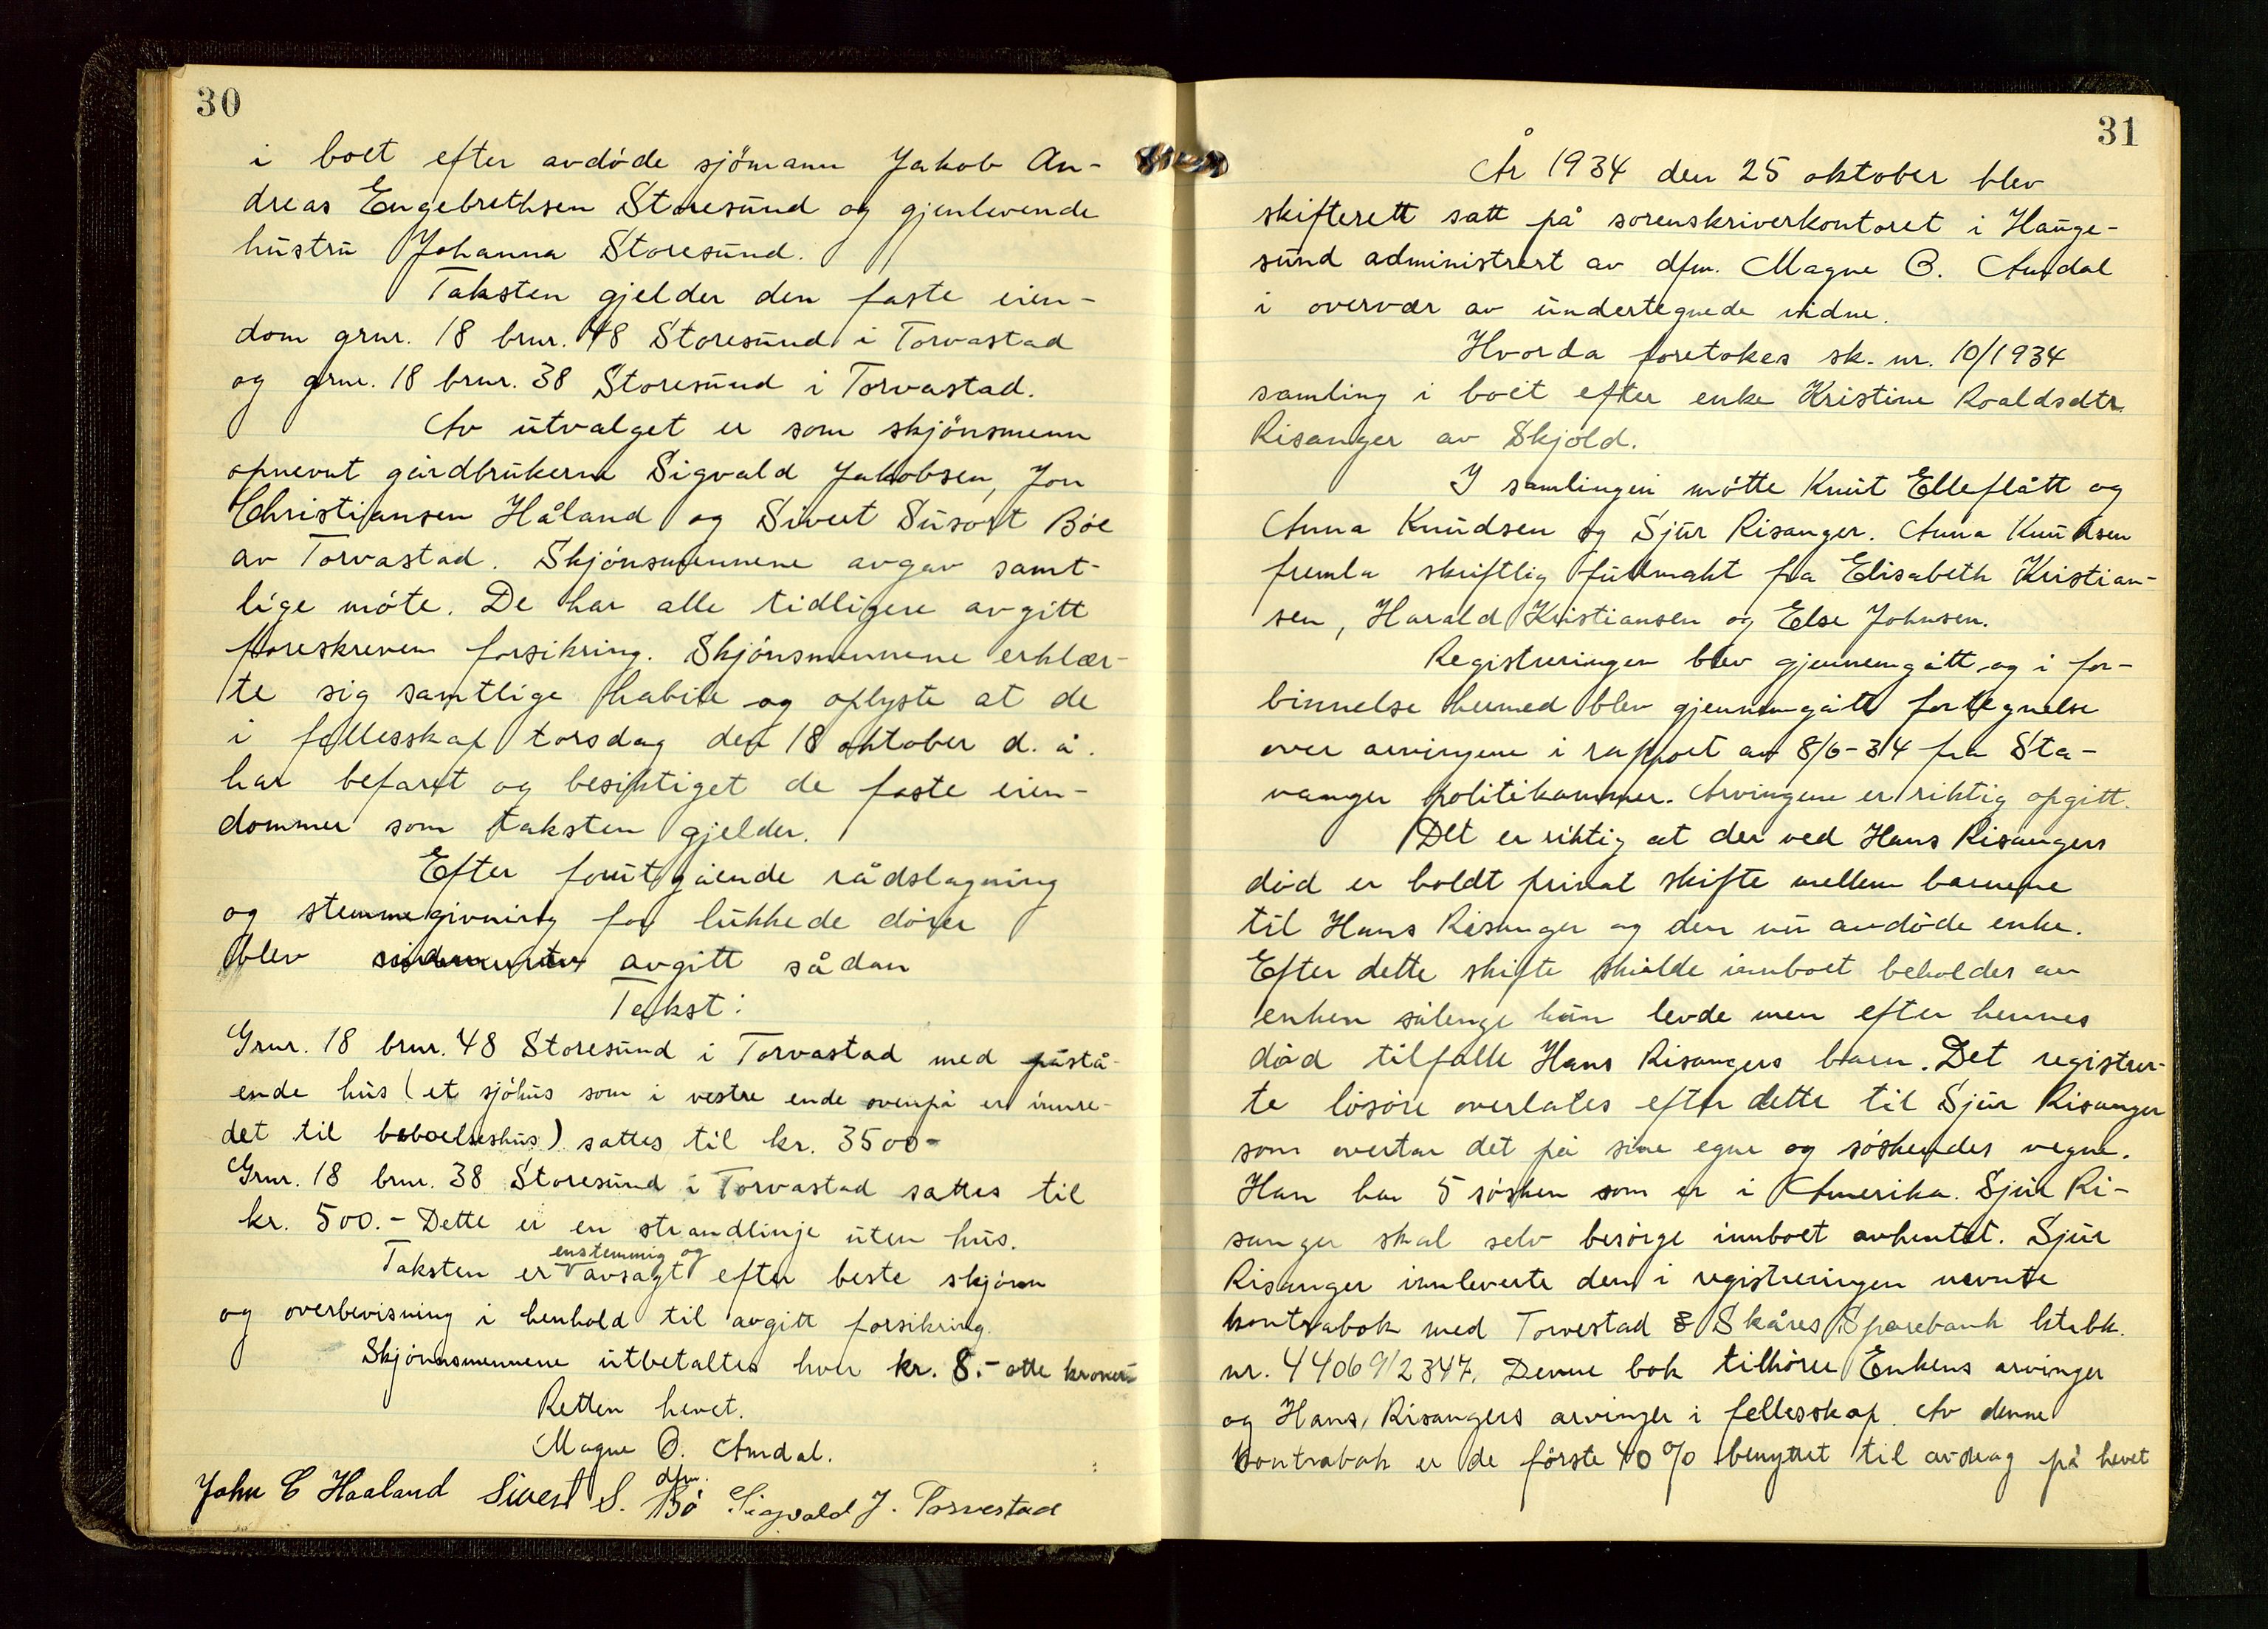 30
i boet efter avdøde sjømann Jakob An-
dreas Engebrethsen Storesund og gjenlevende
hustru Johanna Storesund.
Taksten gjelder den faste eien-
dom grnr. 18 brnr. 48 Storesund i Torvastad
og grnr. 18 brnr. 38 Storesund i Torvastad.
Av utvalget er som skjønsmenn
opnevnt gårdbrukerne Sigvald Jakobsen, Jon
Christiansen Håland og Sivert Susort Bøe
av Torvastad. Skjønsmennene avgav samt-
lige møte. De har alle tidligere avgitt
foreskreven forsikring. Skjønsmennene erklær-
te sig samtlige habile og oplyste at de
i fellesskap torsdag den 18 oktober d. å.
har befaret og besiktiget de faste eien-
dommer som taksten gjelder.
Efter forutgående rådslagning
og stemmegivning for lukkede dører
blev avgitt sådan
Takst:
Grnr. 18 brnr. 48 Storesund i Torvastad med påstå-
ende hus (et sjøhus som i vestre ende ovenpå er innre-
det til beboelseshus) sattes til kr. 3500-
Grnr. 18 brnr. 38 Storesund i Torvastad sattes til
kr. 500.- Dette er en strandlinje uten hus.
enstemmig og
Taksten er avsagt efter beste skjønn
og overbevisning i henhold til avgitt forsikring.
Skjønnsmennene utbetaltes hver kr. 8.- otte kroner-
Retten hevet.
Magne O. Amdal.
dfm.
John C Haaland Sivert S. Bö Sigvald J. Torvestad
31
År 1934 den 25 oktober blev
skifterett satt på sorenskriverkontoret i Hauge-
sund administrert av dfm. Magne O. Amdal
i overvær av undertegnede vidne.
Hvorda foretokes sk. nr. 10/1934
samling i boet efter enke Kristine Roaldsdtr.
Risanger av Skjold.
I samlingen møtte Knut Elleflått og
Anna Knudsen og Sjur Risanger. Anna Knudsen
fremla skriftlig fullmakt fra Elisabeth Kristian-
sen, Harald Kristiansen og Else Johnsen.
Registreringen blev gjennemgått og i for-
binnelse hermed blev gjennemgått fortegnelse
over arvingene i rapport av 8/6-34 fra Sta-
vanger politikammer. Arvingene er riktig opgitt.
Det er riktig at der ved Hans Risangers
død er holdt privat skifte mellem barnene
til Hans Risanger og den nu avdøde enke.
Efter dette skifte skulde innboet beholdes av
enken sålenge hun levde men efter hennes
død tilfalle Hans Risangers barn. Det registrer-
te løsøre overlates efter dette til Sjur Risanger
som overtar det på sine egne og søskendes vegne.
Han har 5 søsken som er i Amerika. Sjur Ri-
sanger skal selv besørge innboet avhentet. Sjur
Risanger innleverte den i registreringen nevnte
kontrabok med Torvestad & Skåres Sparebank ktrbk.
nr. 44069/2347. Denne bok tilhører Enkens arvinger
og Hans Risangers arvinger i fellesskap. Av denne
kontrabok er de første 40% benyttet til avdrag på hevet